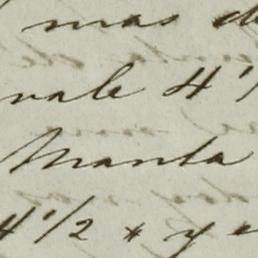 mas de
vale 4 1/
Manta
4 1/2 x y